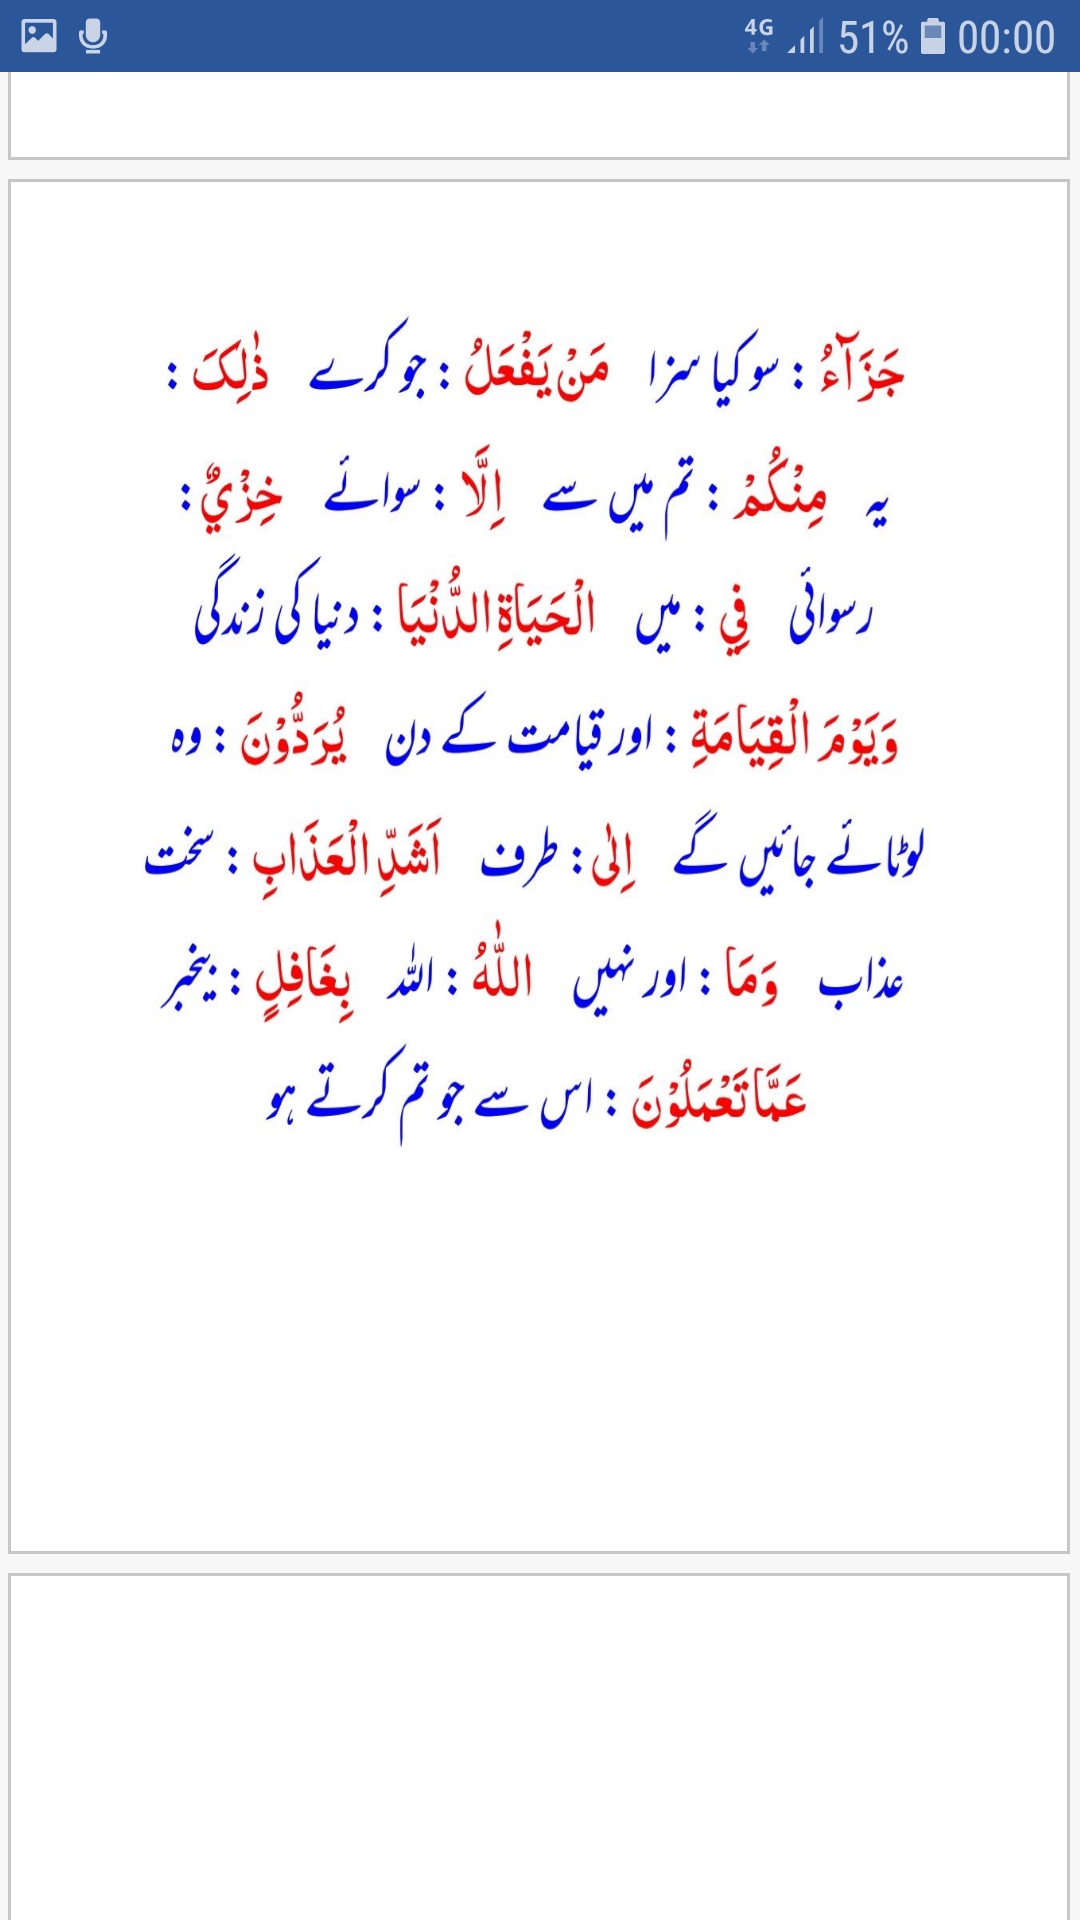 4G 51% 00:00
جَزَآءُ : سو کیا سزا مَنْ يَفْعَلُ : جو کرے ذٰلِکَ :
یہ مِنْكُمْ : تم میں سے اِلَّا : سوائے خِزْيٌ :
رسوائی فِي : میں الْحَيَاةِ الدُّنْيَا : دنیا کی زندگی
وَيَوْمَ الْقِيَامَةِ : اور قیامت کے دن يُرَدُّوْنَ : وہ
لوٹائے جائیں گے اِلٰى : طرف اَشَدِّ الْعَذَابِ : سخت
عذاب وَمَا : اور نہیں اللّٰهُ : اللہ بِغَافِلٍ : بیخبر
عَمَّا تَعْمَلُوْنَ : اس سے جو تم کرتے ہو